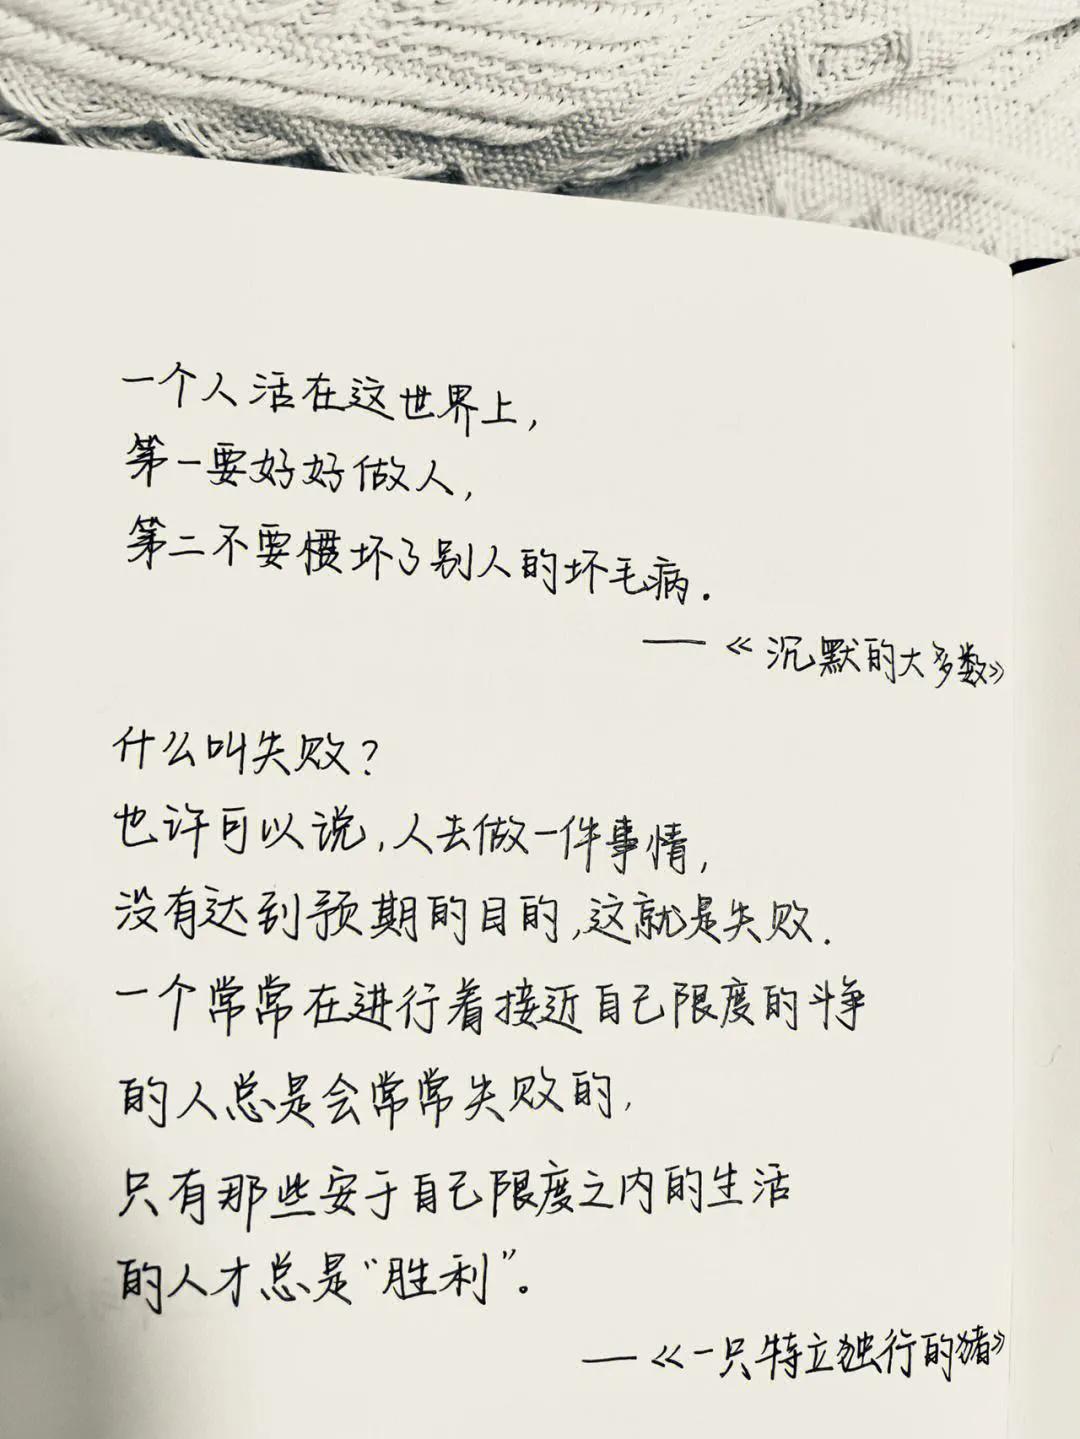 一个人活在这世界上,
第一要好好做人,
第二不要惯坏了别人的坏毛病.
——《沉默的大多数》
什么叫失败?
也许可以说,人去做一件事情,
没有达到预期的目的,这就是失败.
一个常常在进行着接近自己限度的斗争
的人总是会常常失败的,
只有那些安于自己限度之内的生活
的人才总是“胜利”。
——《一只特立独行的猪》